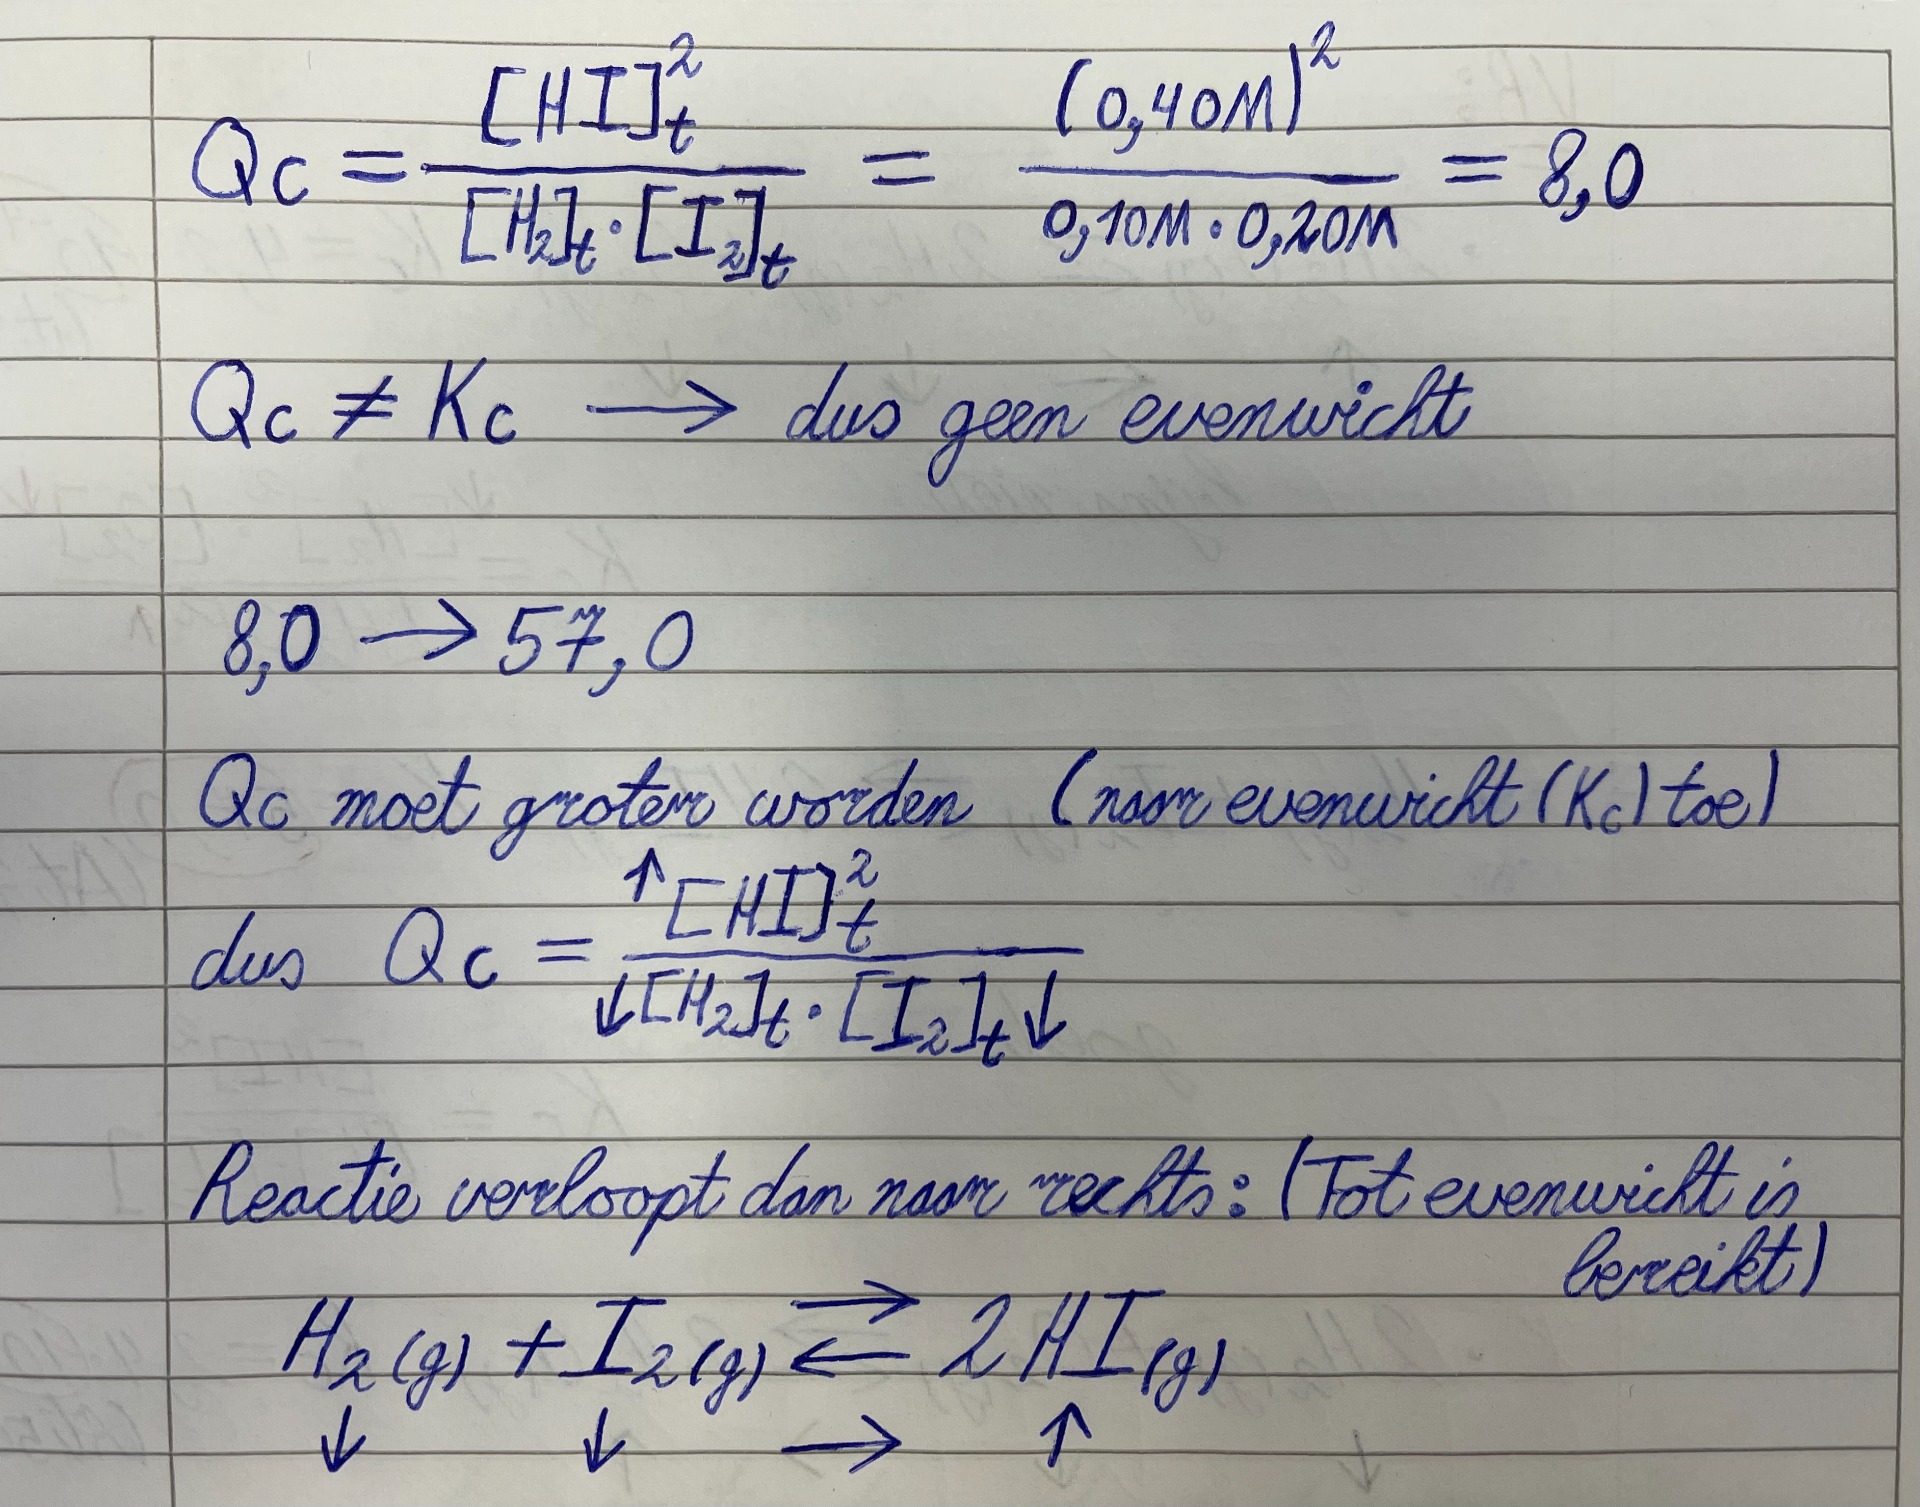 Qc = [HI]²t / [H₂]t · [I₂]t = (0,40M)² / 0,10M · 0,20M = 8,0
Qc ≠ Kc → dus geen evenwicht
8,0 → 57,0
Qc moet groter worden (naar evenwicht (Kc) toe)
dus Qc = ↑[HI]²t / ↓[H₂]t · [I₂]t↓
Reactie verloopt dan naar rechts: (Tot evenwicht is
bereikt)
H₂(g) + I₂(g) ⇄ 2HI(g)
↓ ↓ → ↑